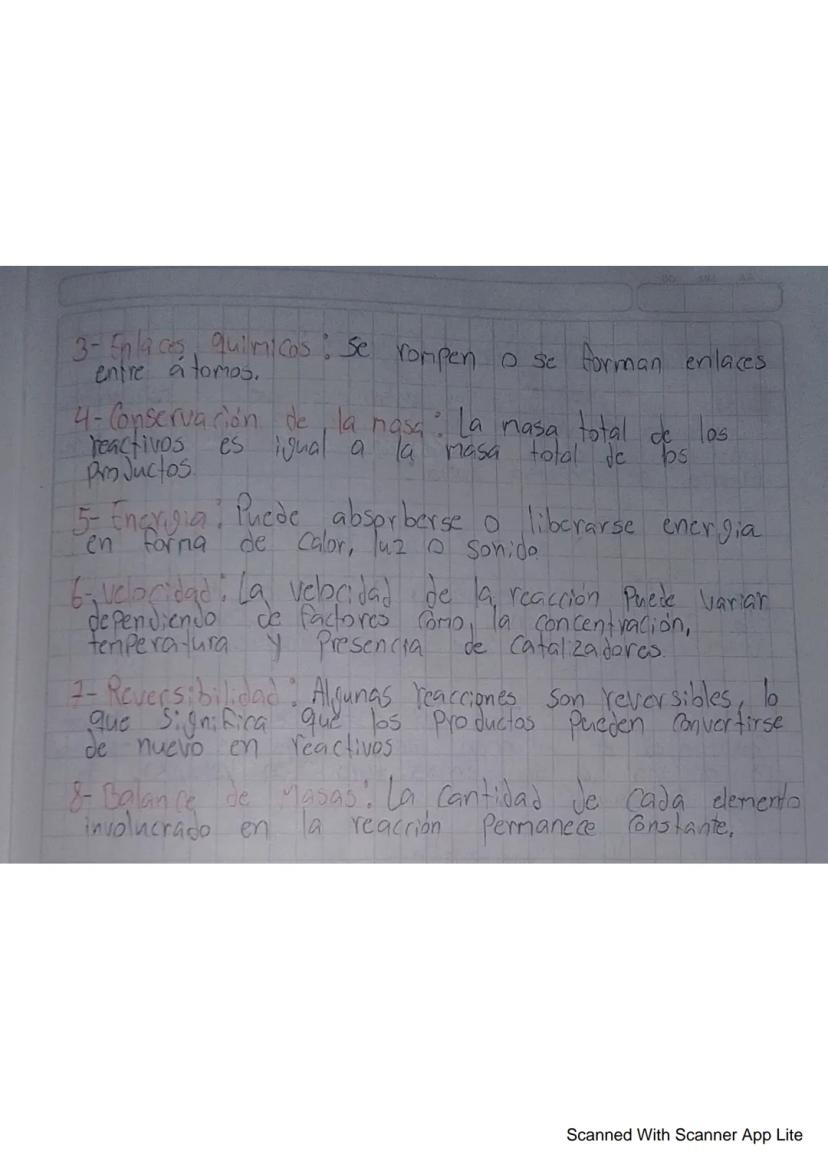 3- Enlaces químicos: Se rompen o se forman enlaces
entre átomos.
4- Conservación de la nasa: La nasa total de los
reactivos es igual a la masa total de los
Productos
5- Energia: Puede absorberse o liberarse energia
en forna de calor, luz o sonido
6- velocidad: La velocidad de la reacción Puede variar
dependiendo de factores como, la concentración,
tenperatura y Presencia de Catalizadores.
7- Reversibilidad: Algunas reacciones son reversibles, lo
que significa que los Productos Pueden convertirse
de nuevo en reactivos
8- Balance de Masas: La cantidad de cada elemento
involucrado en la reacción Permanece constante.
Scanned With Scanner App Lite